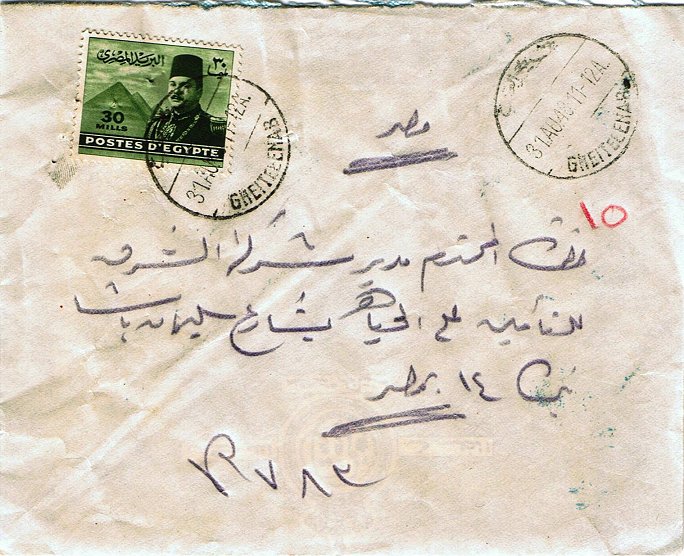 البريد المصرى
٣٠
30
MILLS
POSTES D'EGYPTE
31 AU
11-12A.
GHEITELENAB
31 AU 48 11-12A.
GHEITELENAB
مصر
١٥
حضرت المحترم مدير شركة الشرق
للتأمين على الحياة بشارع سليمان باشا
١٤ بمصر
٧٨٣